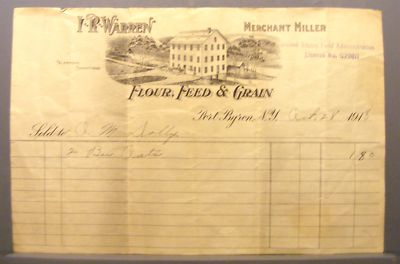 I. R. WARREN
MERCHANT MILLER
United States Food Administration
License No.
FLOUR, FEED & GRAIN
Port Byron, N.Y. Oct 28 1918
Sold to
2 Bu Oats 1 80